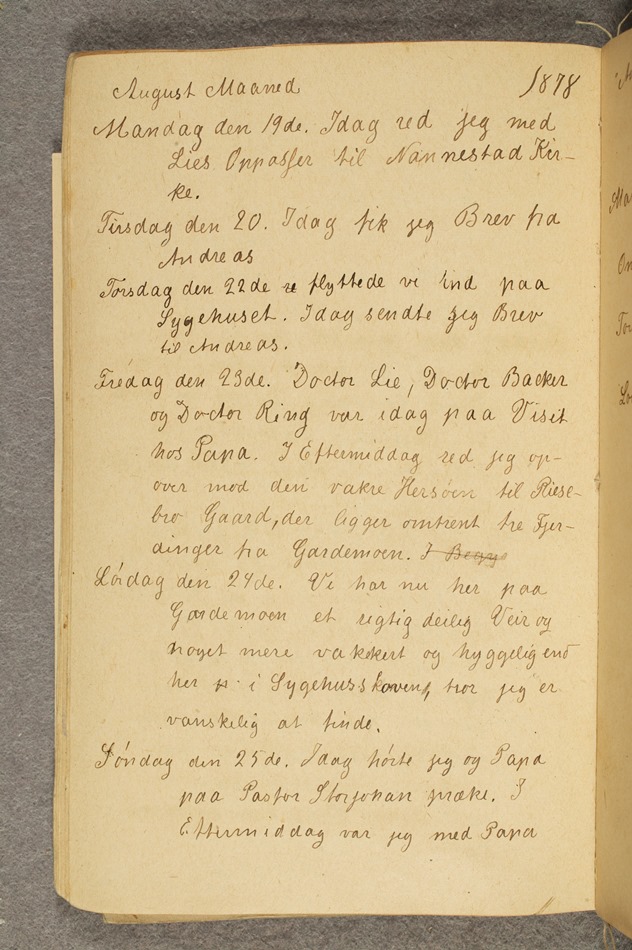 August Maaned 1878
Mandag den 19de. Idag red jeg med
Lies Oppasser til Nannestad Kir-
ke.
Tirsdag den 20. Idag fik jeg Brev fra
Andreas
Torsdag den 22de flyttede vi ind paa
Sygehuset. Idag sendte jeg Brev
til Andreas.
Fredag den 23de. Doctor Lie, Doctor Backer
og Doctor Ring var idag paa Visit
hos Papa. I Eftermiddag red jeg op-
over mod den vakre Hersöen til Riese-
bro Gaard, der ligger omtrent tre Fjer-
dinger fra Gardemoen. I Begy
Lördag den 24de. Vi har nu her paa
Gardemoen et rigtig deilig Veir og
noget mere vakkert og hyggelig end
her i Sygehusskoven, tror jeg er
vanskelig at finde.
Söndag den 25de. Idag hörte jeg og Papa
paa Pastor Storjohan præke. I
Eftermiddag var jeg med Papa